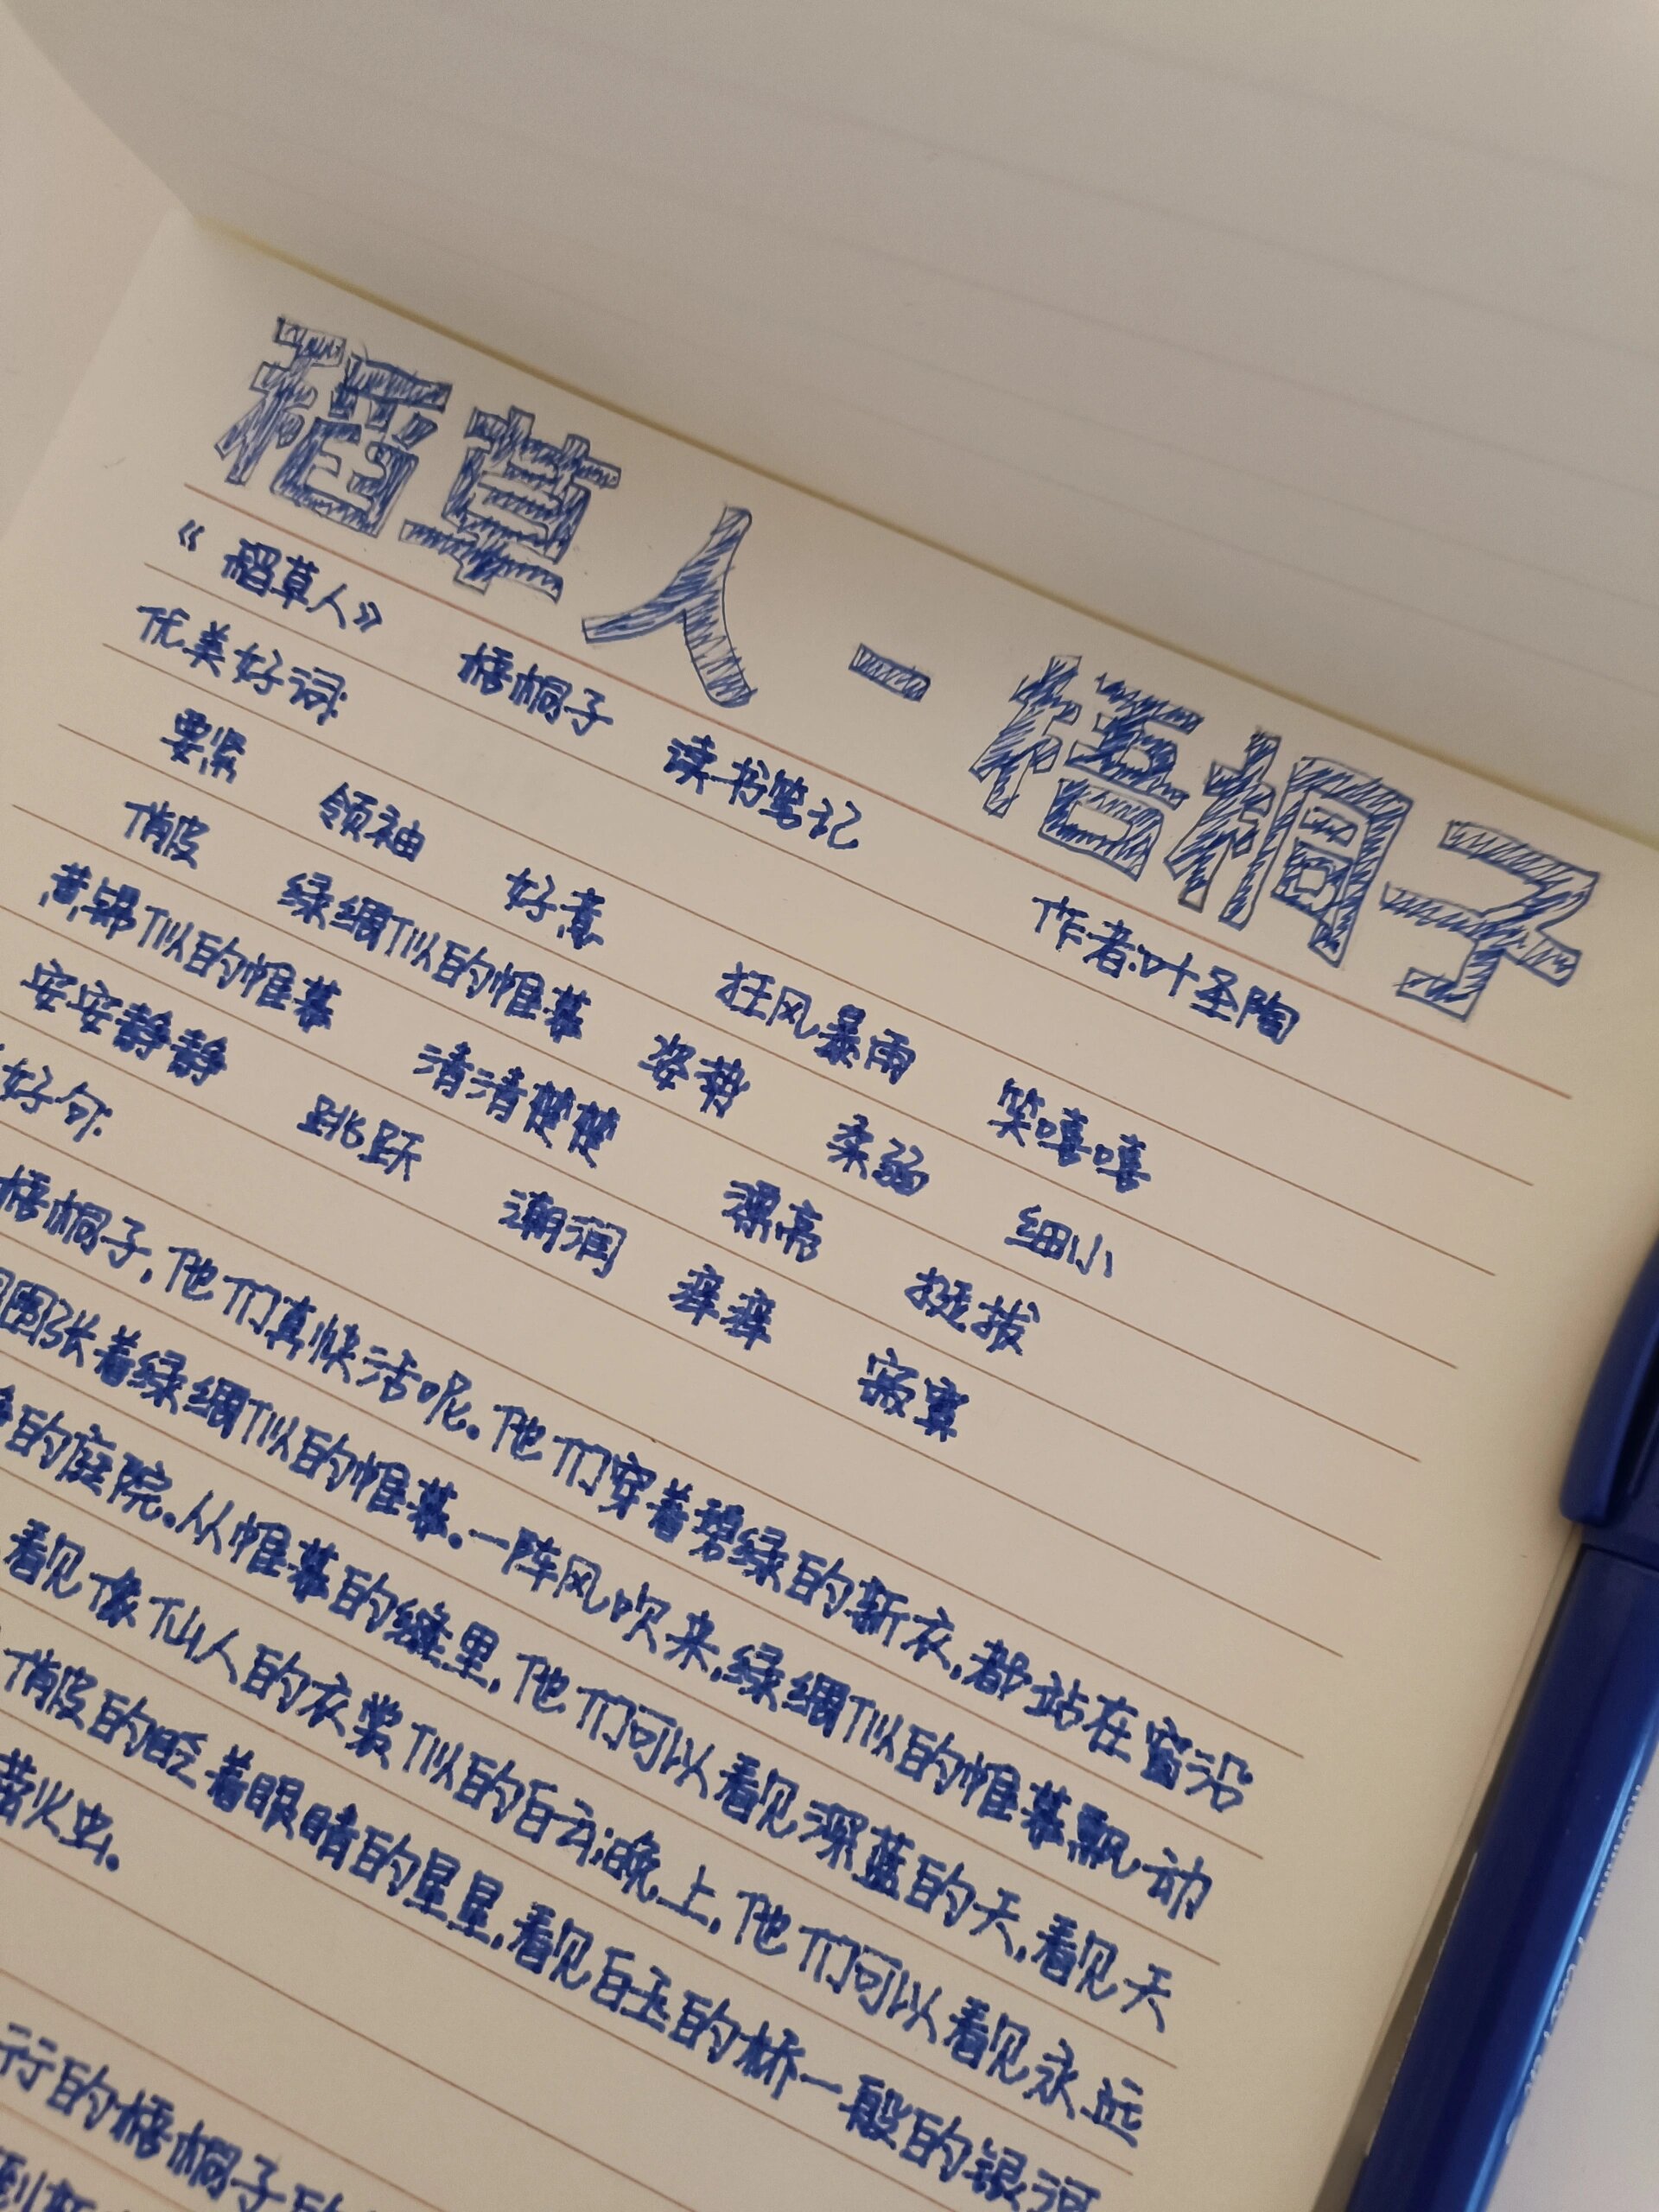 稻草人-梧桐子
《稻草人》 梧桐子 读书笔记 作者:叶圣陶
优美好词:
要紧 领袖 好意 狂风暴雨 笑嘻嘻
俏皮 绿绸似的帷幕 姿势 柔弱 细小
黄锦似的帷幕 清清楚楚 漂亮 挺拔
安安静静 跳跃 潮润 痒痒 寂寞
好句:
梧桐子,他们真快活呢。他们穿着碧绿的新衣,都站在窗沿
围张着绿绸似的帷幕。一阵风吹来,绿绸似的帷幕飘动
的庭院。从帷幕的缝里,他们可以看见深蓝的天,看见天
看见像仙人的衣裳似的白云;晚上,他们可以看见永远
俏皮的眨着眼睛的星星,看见白玉的桥一般的银河
火虫。
行的梧桐子的